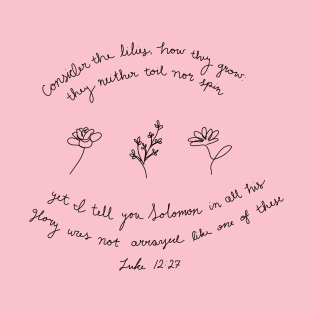 Consider the lilies, how they grow:
they neither toil nor spin
yet I tell you Solomon in all his
glory was not arrayed like one of these
Luke 12:27